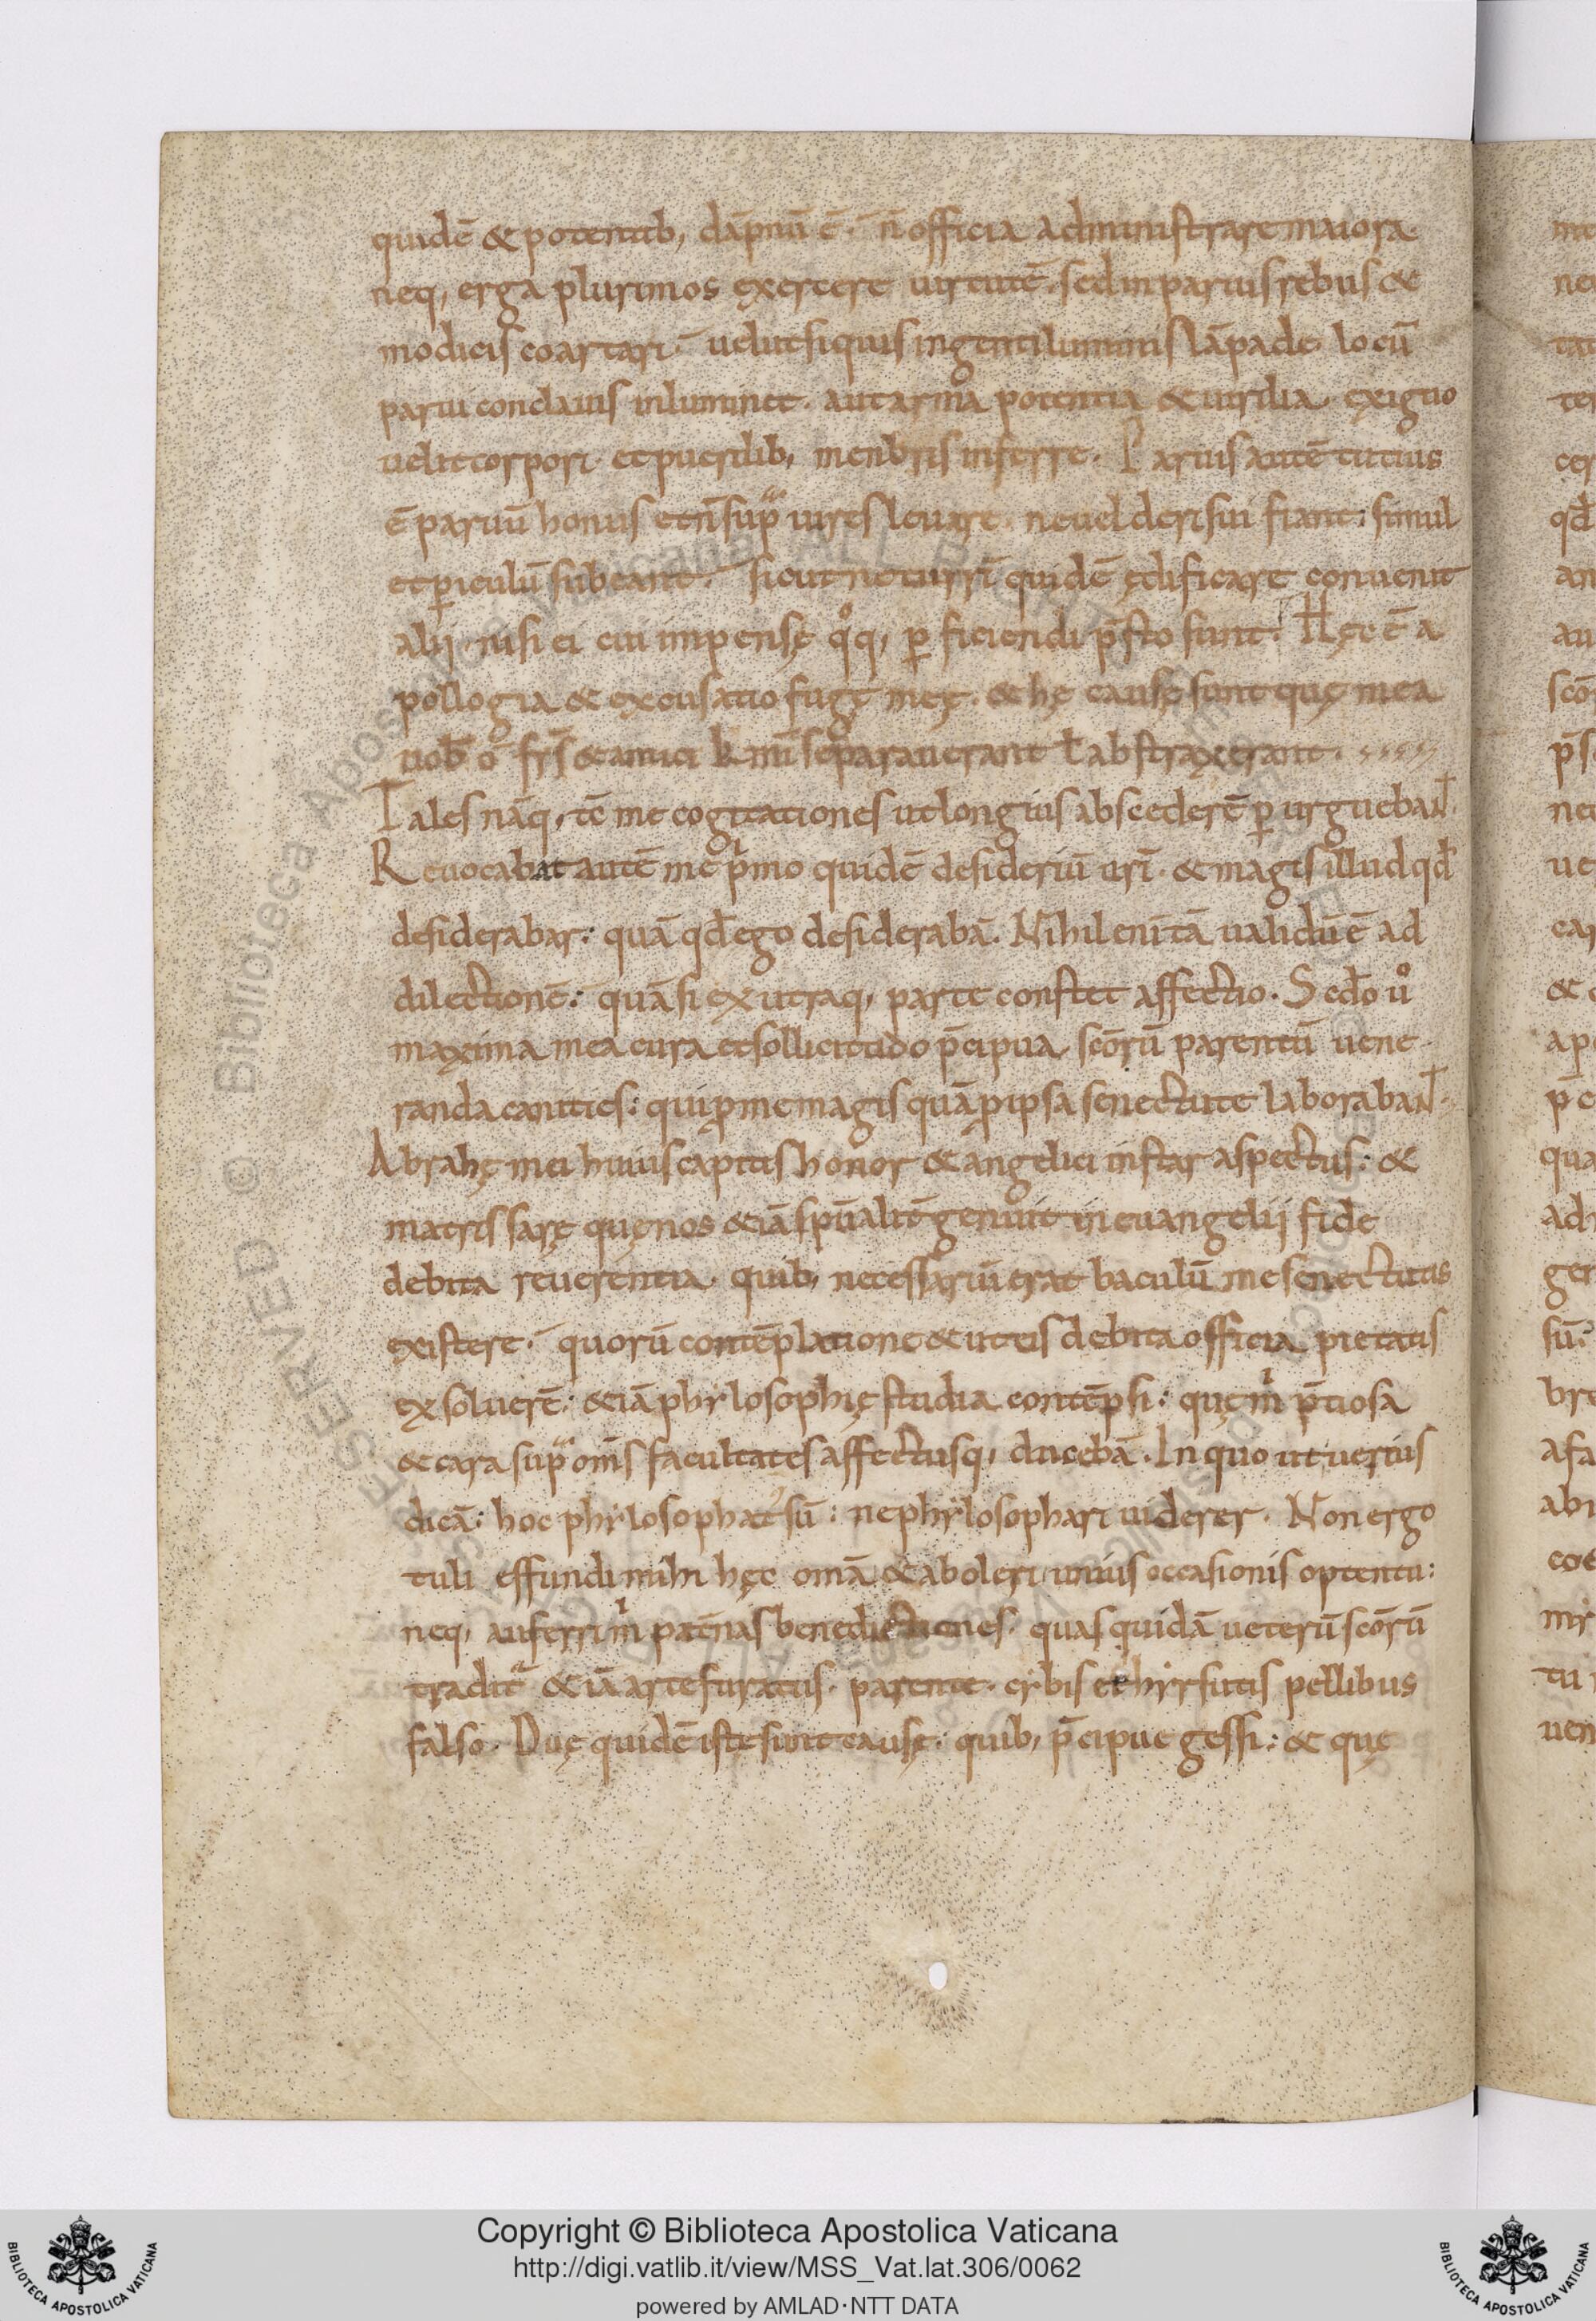 quidē & potentib; dāpnū ē. n̄ officia adminiſtrare maiora.
neq; erga plurimos exercere uirtutē. ſed in paruis rebus &
modicis coartari. uelut ſi quis ingenti luminis lāpade locū
parui conclauis inluminet. aut arma potentia & uirilia exiguo
uelit corpori et puerilib; menbris inferre. Paruis autē tutius
ē paruū honus et n̄ ſup̄ uires leuare. ne uel deriſui fiant: ſimul
et p̱iculū ſubeant. ſicut ne turrī quidē ędificare conuenit
alij niſi ei cui impenſę qͦq; p̱ficiendi p̄ſto ſunt. Hęc ē a
pollogia & excuſatio fugę meę. & hę cauſę ſunt quę mea
uob̄ o fr̄s & amici kmī ſepararuerant ł abſtraxerant.
Tales nāq; tē me cogitationes ut longius abſcederē p̱ urguebant.
Reuocabat autē me pͥmo quidē deſideriū urī. & magis illud qđ
deſiderabar: quā qđ ego deſiderabā. Nihil enī tā ualidū ē ad
dilectionē: quā ſi ex utraq; parte conſtet affectio. Sedo uͦ
maxima mea cura et ſollicitudo p̄cipua. ſcōrū parentū uene
randa canities: qui p me magis quā p ipſa ſenectute laborabant.
Abrahę mei huius capitis honor & angelici inſtar aſpectus: &
matris ſarę quę nos & iā ſpūalit̄ genuit in euangelij fide
debita reuerentia. quib; neceſſariū erat baculū me ſenectutis
exiſtere. quorū contēplatione & ut eis debita officia pietatis
exſoluerē: & iā phyloſophię ſtudia contēpſi: quę mͥ p̄tioſa
& cara ſup̄ om̄s facultates affectuſq; ducebā. In quo ut uerius
dicā: hoc phyloſophat' ſū: ne phyloſophari uiderer. Non ergo
tuli effundi mihi hęc omā & aboleri unius occaſionis optentu:
neq; auferri mͥ pat̄nas benedictiones. quas quidā ueterū ſcōrū
tradit̄ & iā arte furatus. parente. cybis et hyrſutis pellibus
falſo. Duę quidē iſtę ſunt cauſę. quib; p̄cipue geſſi: & quę
Copyright © Biblioteca Apostolica Vaticana
http://digi.vatlib.it/view/MSS_Vat.lat.306/0062
powered by AMLAD·NTT DATA
BIBLIOTECA APOSTOLICA VATICANA
BIBLIOTECA APOSTOLICA VATICANA